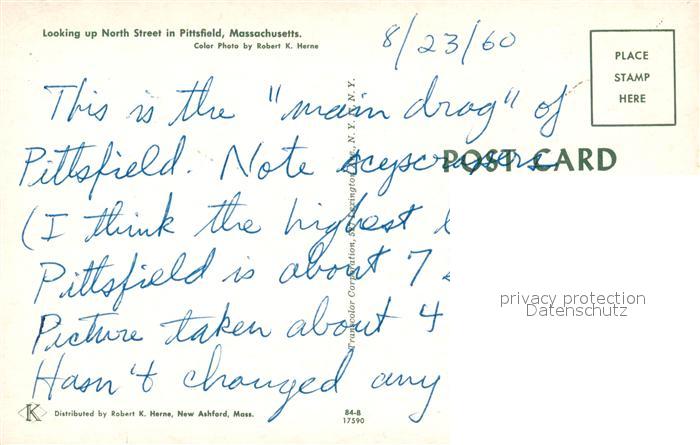 Looking up North Street in Pittsfield, Massachusetts.
Color Photo by Robert K. Herne
8/23/60
PLACE
STAMP
HERE
This is the "main drag" of
Pittsfield. Note
POST CARD
(I think the highest
Pittsfield is about 7
Picture taken about 4
Hasn't changed any
privacy protection
Datenschutz
K
Distributed by Robert K. Herne, New Ashford, Mass.
84-B
17590